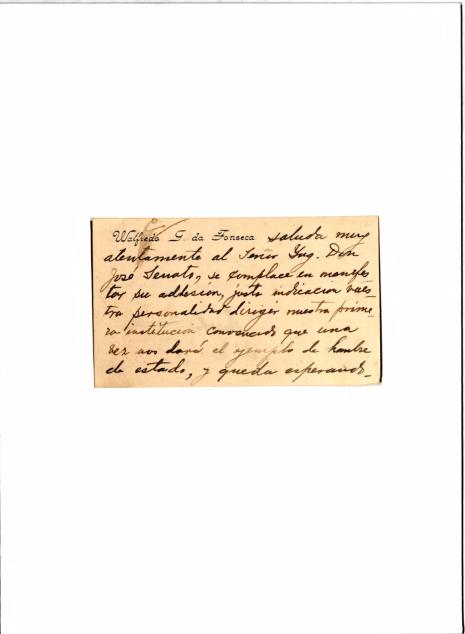 Walfredo G. da Fonseca saluda muy
atentamente al Señor Ing. Don
José Serrato, se complace en manifes
tar su adhesión, justa indicacion vues-
tra personalidad dirigir nuestra prime-
ra institución convencido que una
vez nos dará el ejemplo de hombre
de estado, y queda esperando-